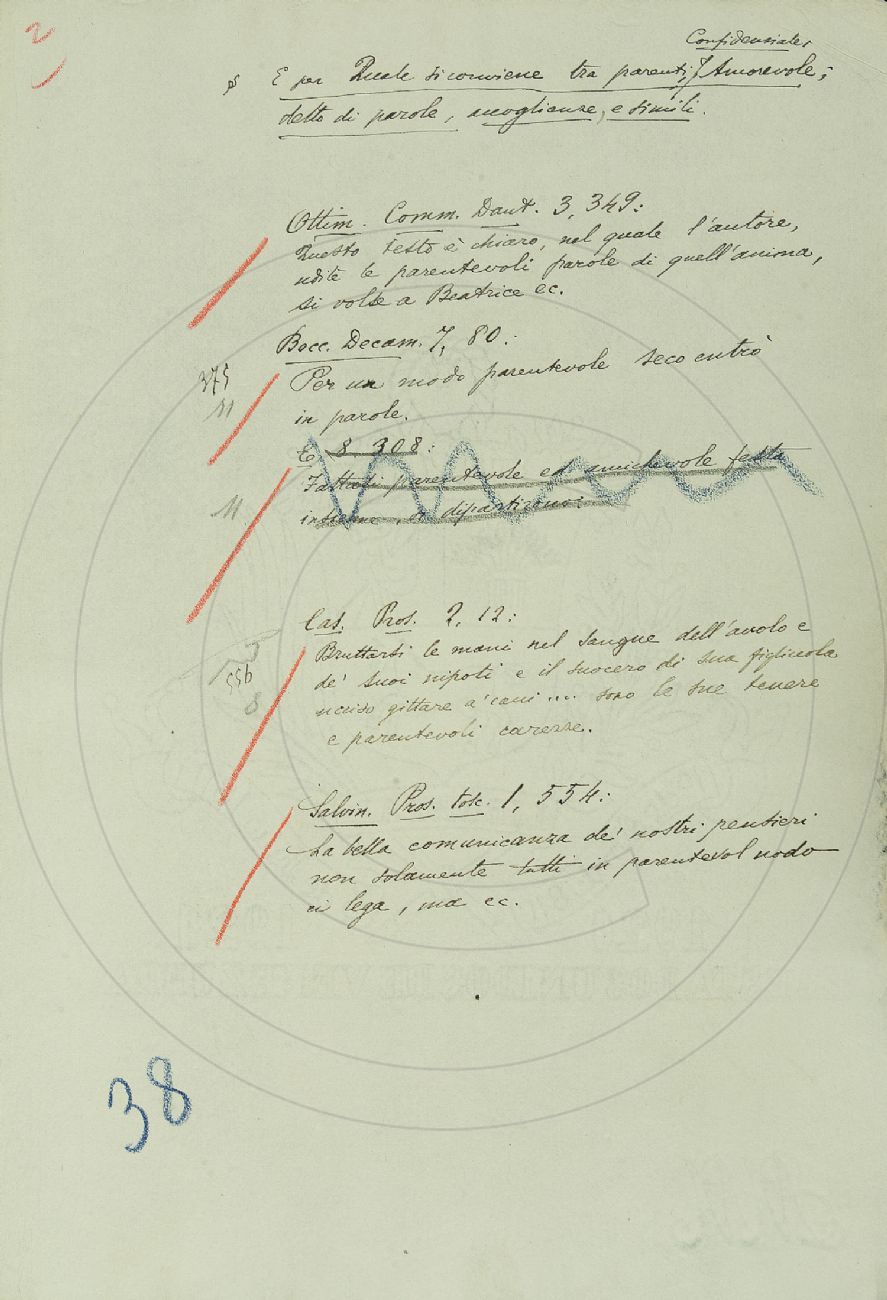 2
Confidenziale,
§ E per Quale si conviene tra parenti, Amorevole;
detto di parole, accoglienze, e simili.
Ottim. Comm. Dant. 3, 349:
Questo testo è chiaro, nel quale l'autore,
udite le parentevoli parole di quell'anima,
si volse a Beatrice ec.
Bocc. Decam. 7, 80:
375
11
Per un modo parentevole seco entrò
in parole.
E 8 308:
Fattasi parentevole ed amichevole festa
11
insieme, si dipartirono:
Cas. Pros. 2, 12:
Bruttarsi le mani nel sangue dell'avolo e
556
de' suoi nipoti e il suocero di sua figliuola
8
ucciso gittare a' cani ... sono le sue tenere
e parentevoli carezze.
Salvin. Pros. tosc. 1, 554:
La bella comunicanza de' nostri pensieri
non solamente tutti in parentevol nodo
ci lega, ma ec.
38